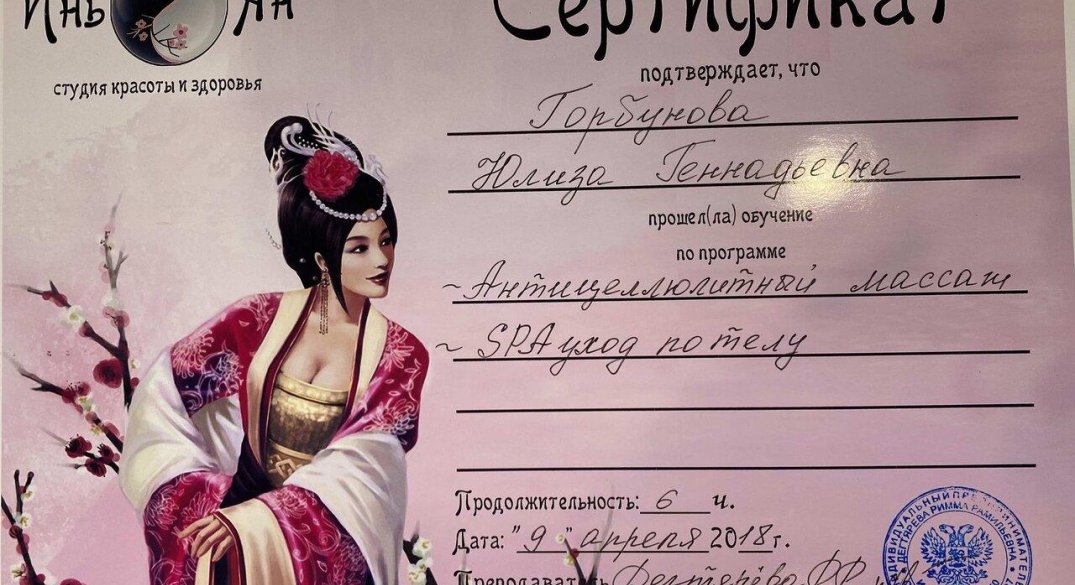 Инь Ян
Сертификат
студия красоты и здоровья
подтверждает, что
Горбунова
Юлиза Геннадьевна
прошел(ла) обучение
по программе
~ Антицеллюлитный массаж
~ SPA уход по телу
Продолжительность: 6 ч.
Дата: "9" апреля 2018г.
Преподаватель Дегтярёва
ИНДИВИДУАЛЬНЫЙ ПРЕДПРИНИМАТЕЛЬ
ДЕГТЯРЕВА РИММА РАМИЛЬЕВНА